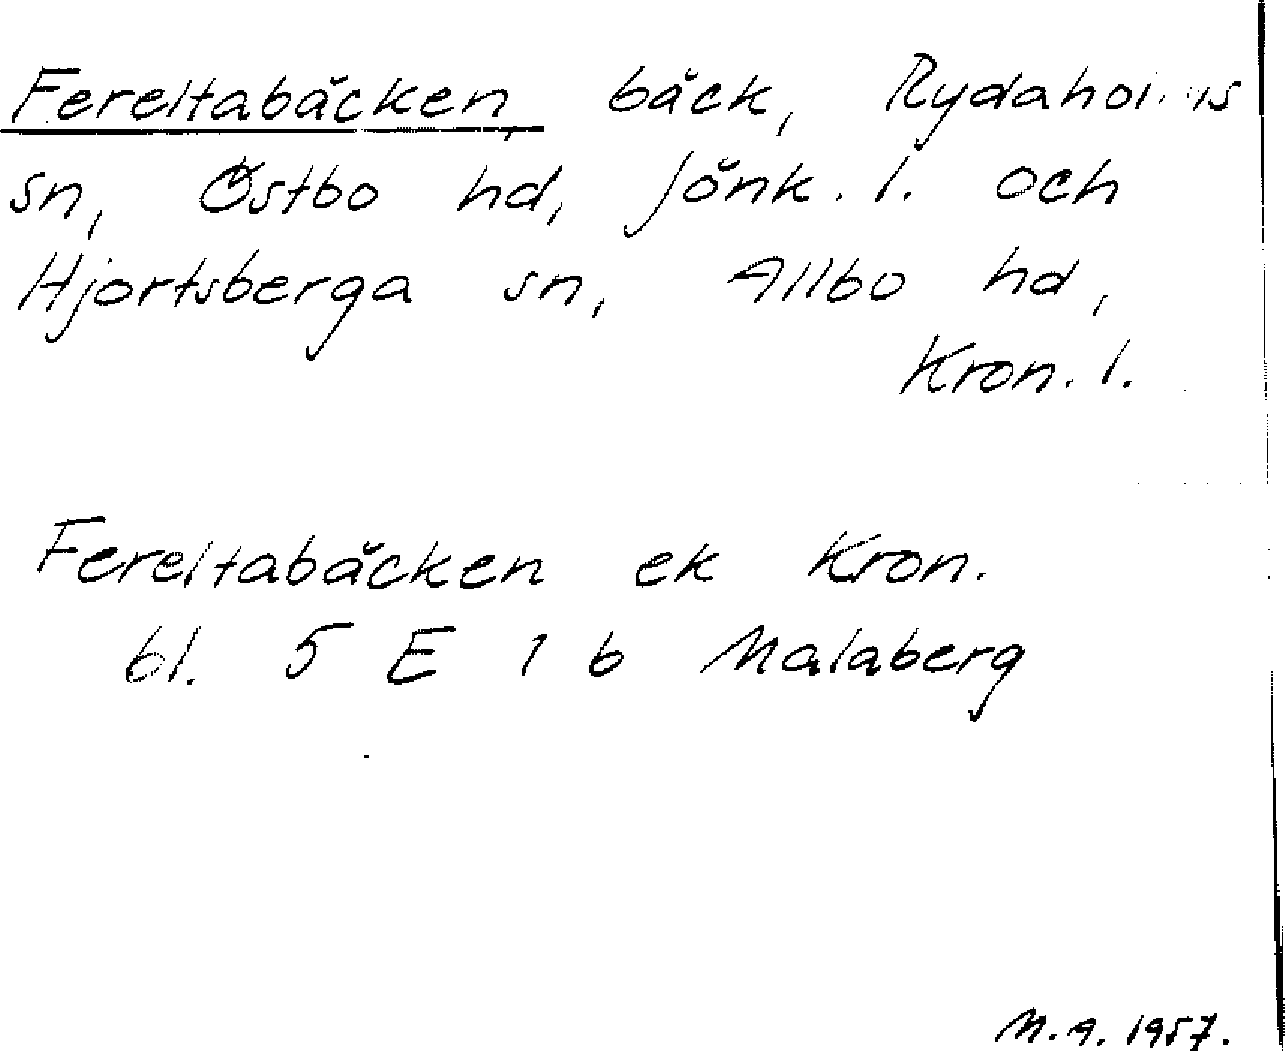 Fereltabäcken, bäck, Rydaholms
sn, Östbo hd, Jönk. l. och
Hjortsberga sn, Allbo hd,
Kron. l.
Fereltabäcken ek Kron.
bl. 5 E 1 b Malaberg
M.A. 1957.